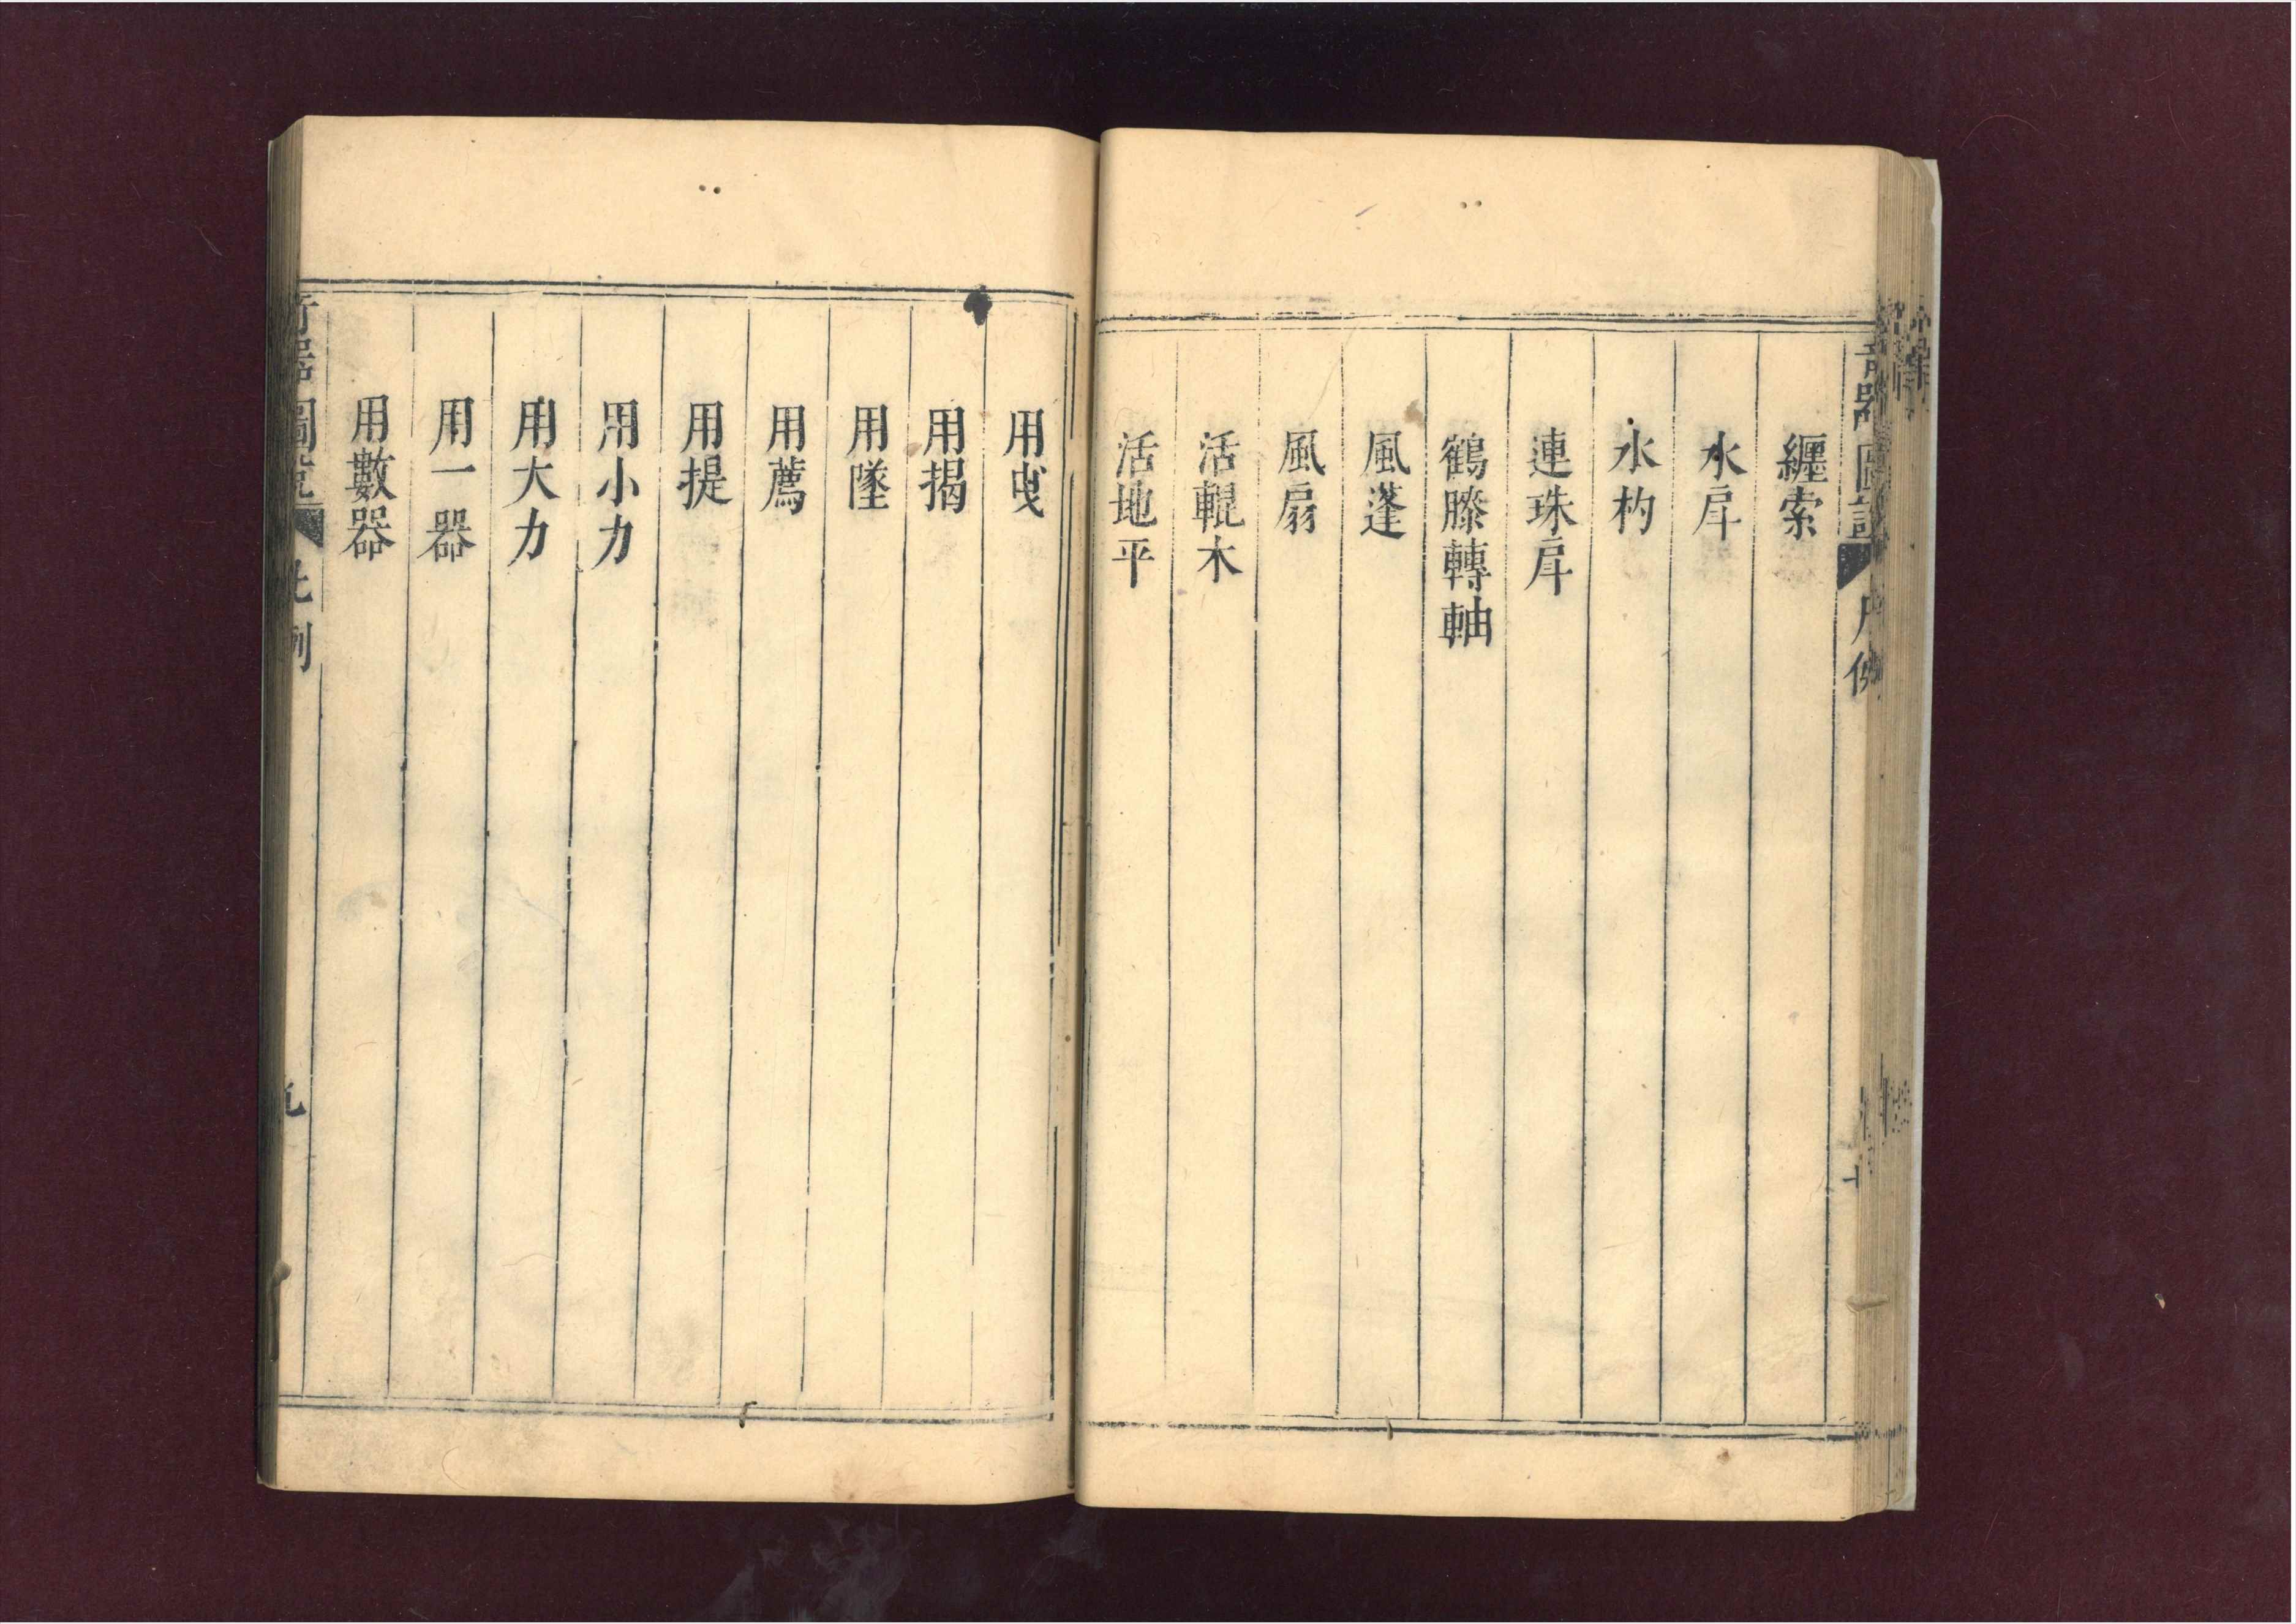 奇器圖說 凡例
纏索
水戽
水杓
連珠戽
鶴膝轉軸
風蓬
風扇
活輥木
活地平
用曳
用揭
用墜
用薦
用提
用小力
用大力
用一器
用數器
奇器圖說 凡例 九